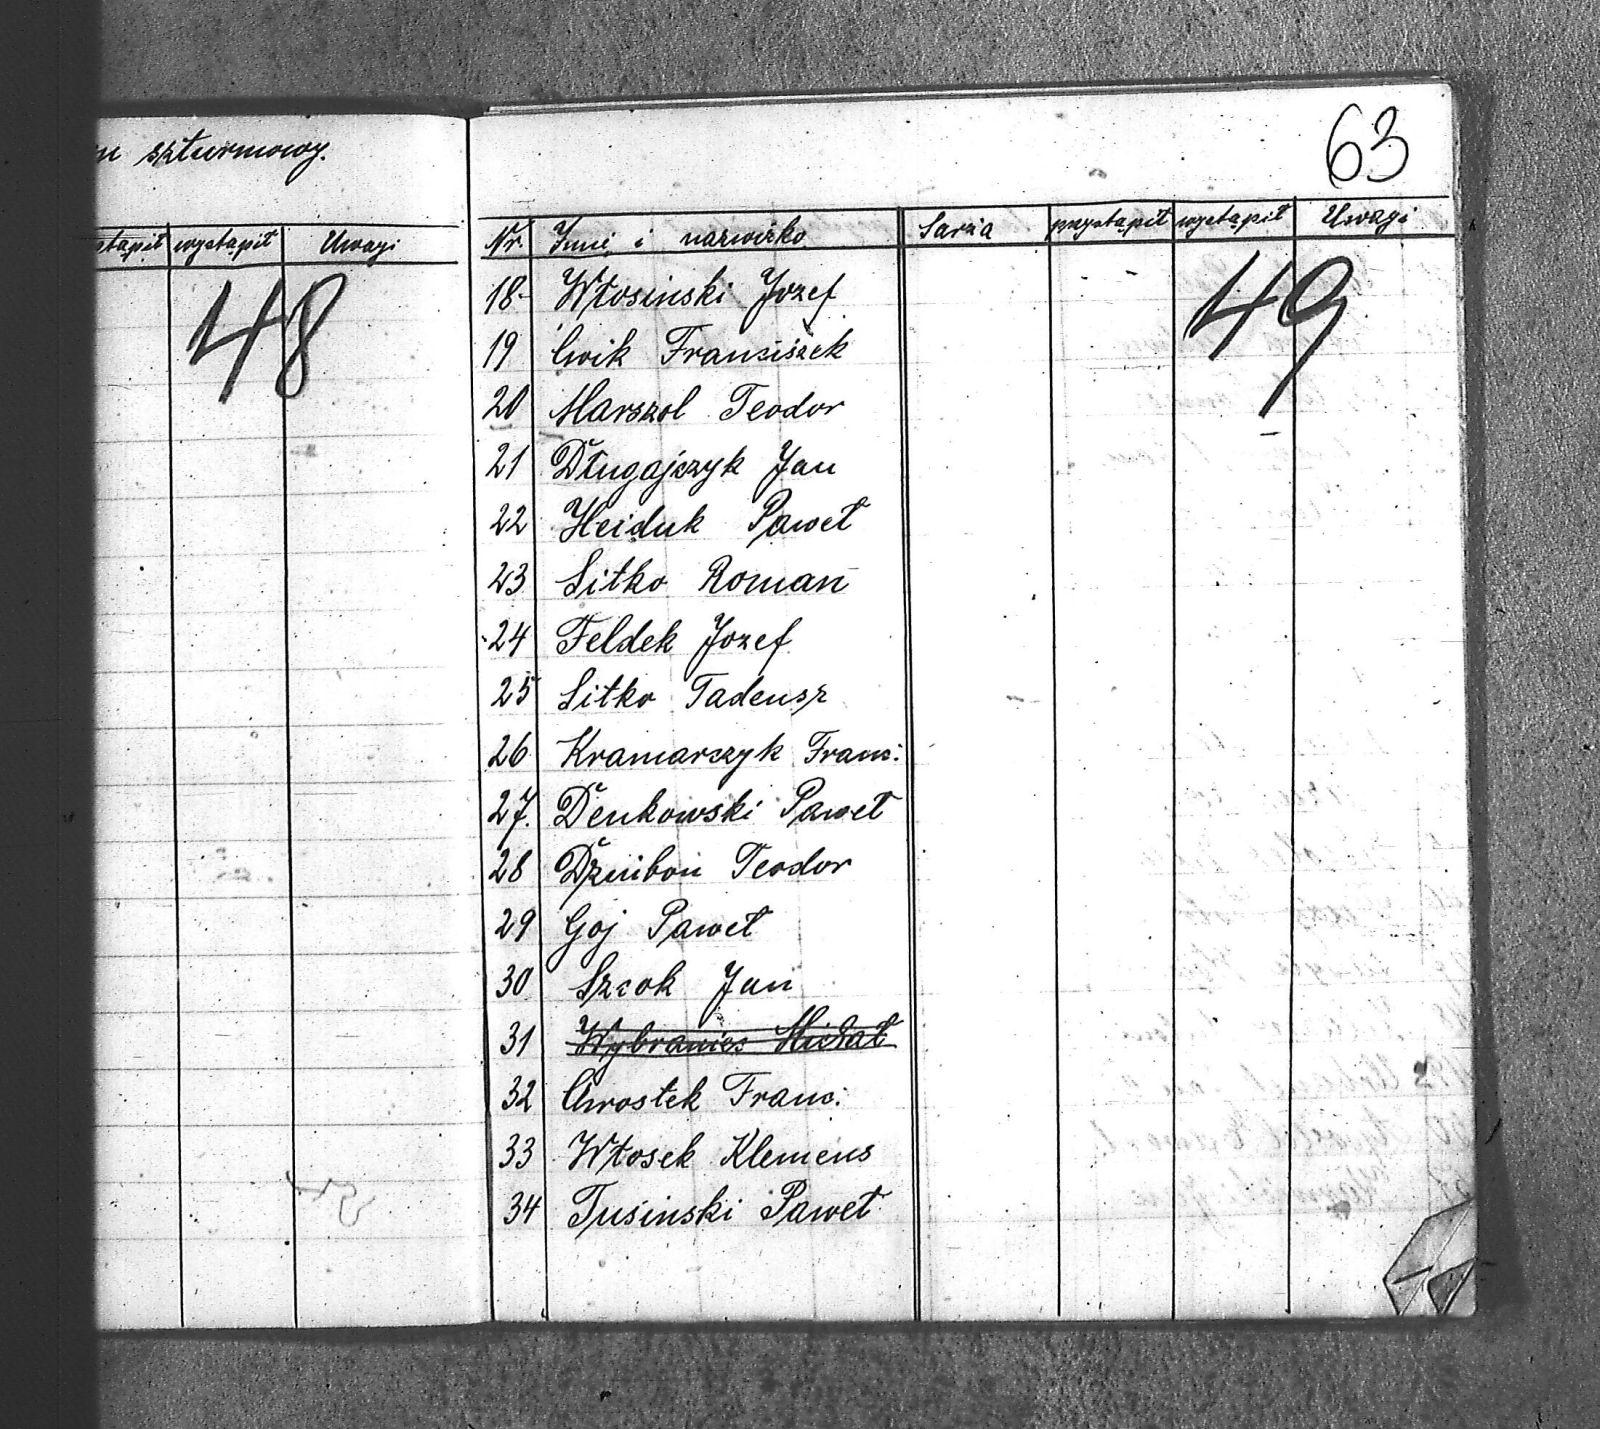 szturmowy.
wystąpił Uwagi
48
63
Nr. Imię i nazwisko Sarża przystąpił wystąpił Uwagi
49
18. Włosinski Jozef
19 Ćwik Franciszek
20 Marszol Teodor
21 Długajczyk Jan
22 Heiduk Paweł
23 Sitko Roman
24 Feldek Jozef
25 Sitko Tadeusz
26 Kramarczyk Franc:
27. Denkowski Paweł
28 Teodor
29 Goj Paweł
30 Jan
31 Wybraniec Michał
32 Chrostek Franc:
33 Włosek Klemens
34 Tusinski Paweł